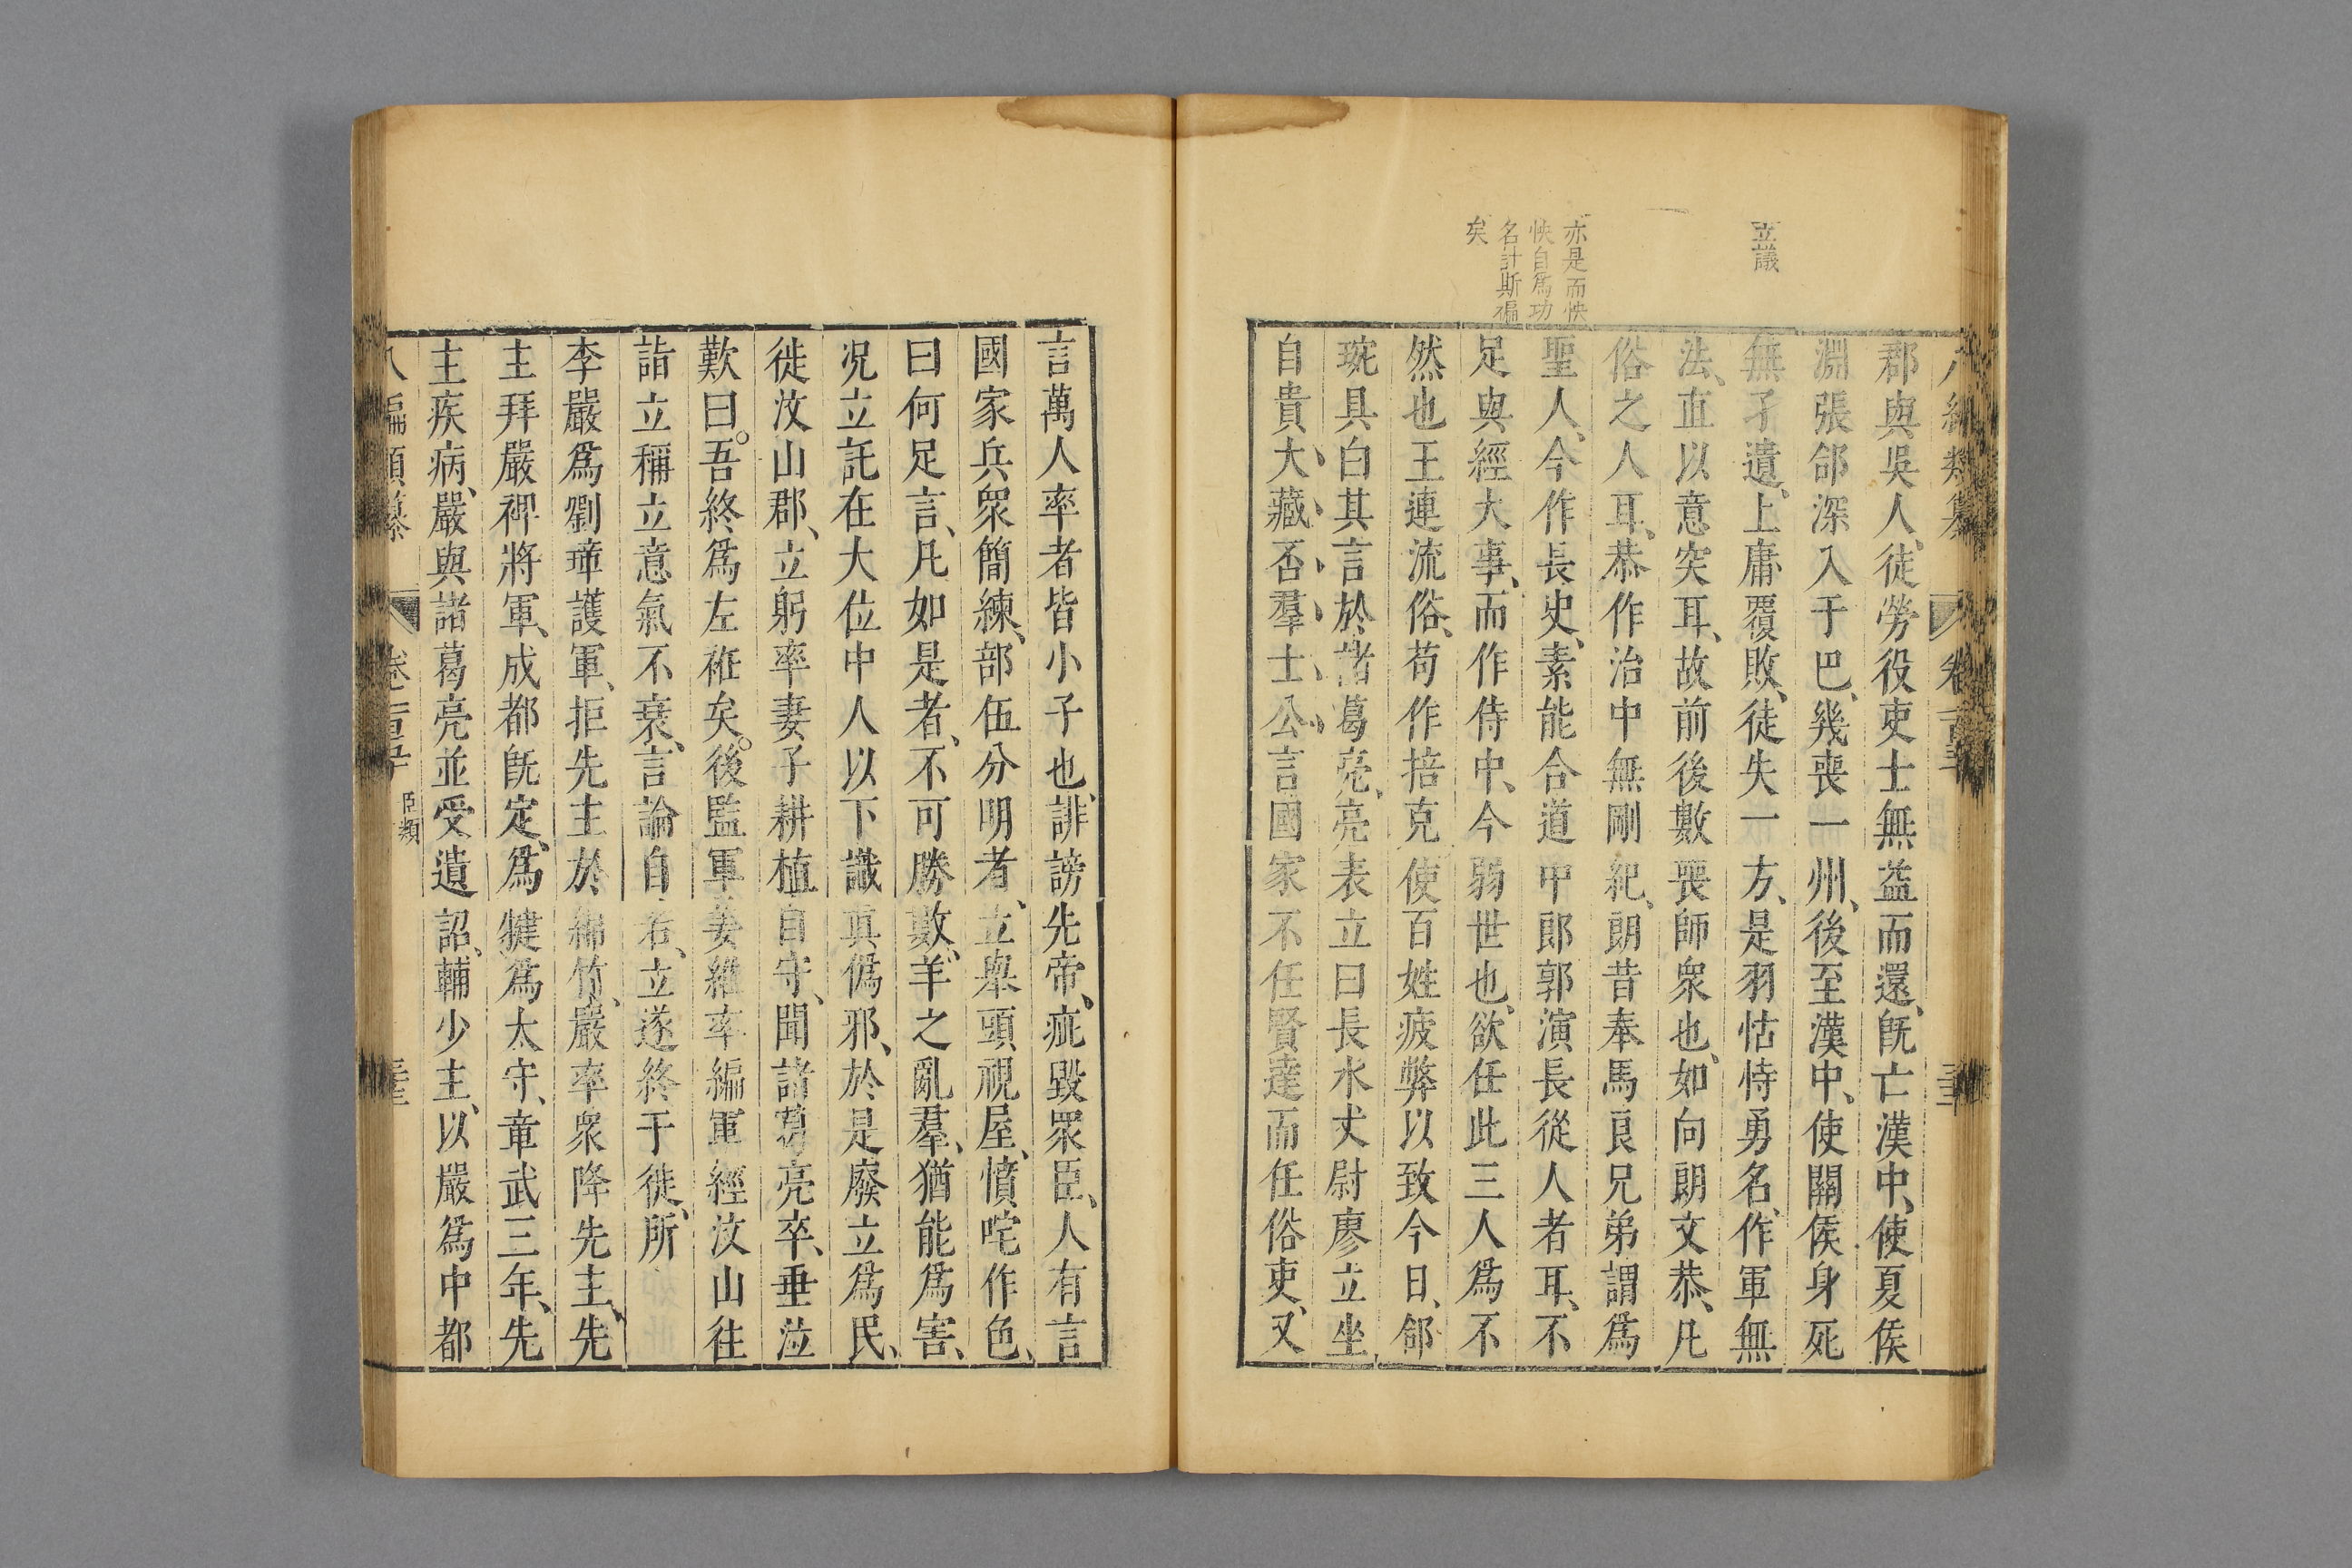 立議
亦是而怏
怏自爲功
名計斯褊
矣
郡與吳人、徒勞役吏士無益而還、旣亡漢中、使夏侯
淵張郃深入于巴、幾喪一州、後至漢中、使關侯身死
無孑遺、上庸覆敗、徒失一方、是羽怙恃勇名、作軍無
法、直以意突耳、故前後數喪師衆也、如向朗文恭、凡
俗之人耳、恭作治中無剛紀、朗昔奉馬良兄弟謂爲
聖人、今作長史、素能合道中郎郭演長從人者耳、不
足與經大事、而作侍中、今弱世也、欲任此三人爲不
然也王連流俗、苟作掊克使百姓疲弊以致今日、郃
琬具白其言於諸葛亮、亮表立曰長水丈尉廖立坐
自貴大、藏、否、羣、士、公、言國家不任賢達而任俗吏、又
言萬人率者皆小子也、誹謗先帝、疵毀眾臣、人有言
國家兵衆簡練、部伍分明者、立舉頭視屋、憤咤作色、
曰何足言、凡如是者、不可勝數、羊之亂羣、猶能爲害、
况立託在大位中人以下識眞僞邪、於是廢立爲民、
徙汶山郡、立躬率妻子耕植自守、聞諸葛亮卒、垂泣
歎曰。吾終爲左袵矣。後監軍姜維率編軍經汶山往
詣立稱立意氣不衰、言論自若、立遂終于徙、所
李嚴爲劉璋護軍、拒先主於綿竹、嚴率衆降先主、先
主拜嚴裨將軍、成都旣定、爲犍爲太守、章武三年、先
主疾病、嚴與諸葛亮並受遺詔、輔少主、以嚴爲中都
臣類